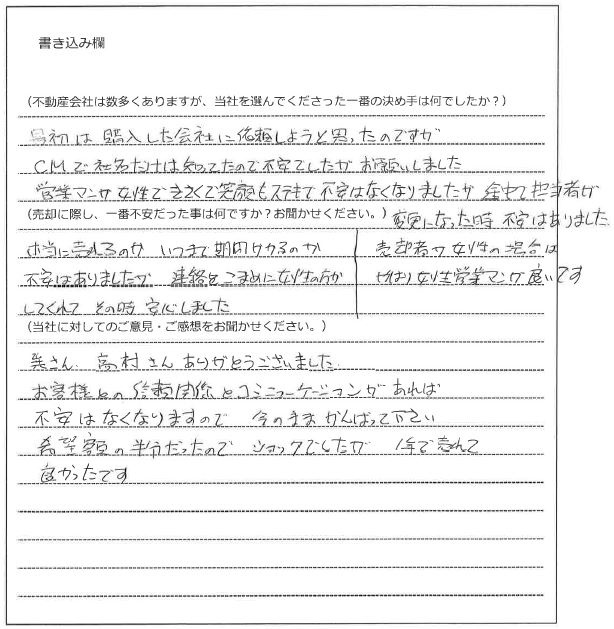 書き込み欄
(不動産会社は数多くありますが、当社を選んでくださった一番の決め手は何でしたか?)
最初は購入した会社に依頼しようと思ったのですが
CMで社名だけは知ってたので不安でしたが お願いしました
営業マンが女性で きさくで笑顔もステキで 不安はなくなりましたが 途中で担当者が
変更になった時 不安はありました
(売却に際し、一番不安だった事は何ですか?お聞かせください。)
本当に売れるのか いつまで期間かかるのか
不安はありましたが 連絡をこまめに女性の方が
してくれて その時 安心しました
売却者が女性の場合は
やはり女性営業マンが良いです
(当社に対してのご意見・ご感想をお聞かせください。)
さん、高村さん ありがとうございました
お客様との信頼関係とコミニューケーションがあれば
不安はなくなりますので 今のまま がんばって下さい
希望額の半分だったので ショックでしたが 1年で売れて
良かったです